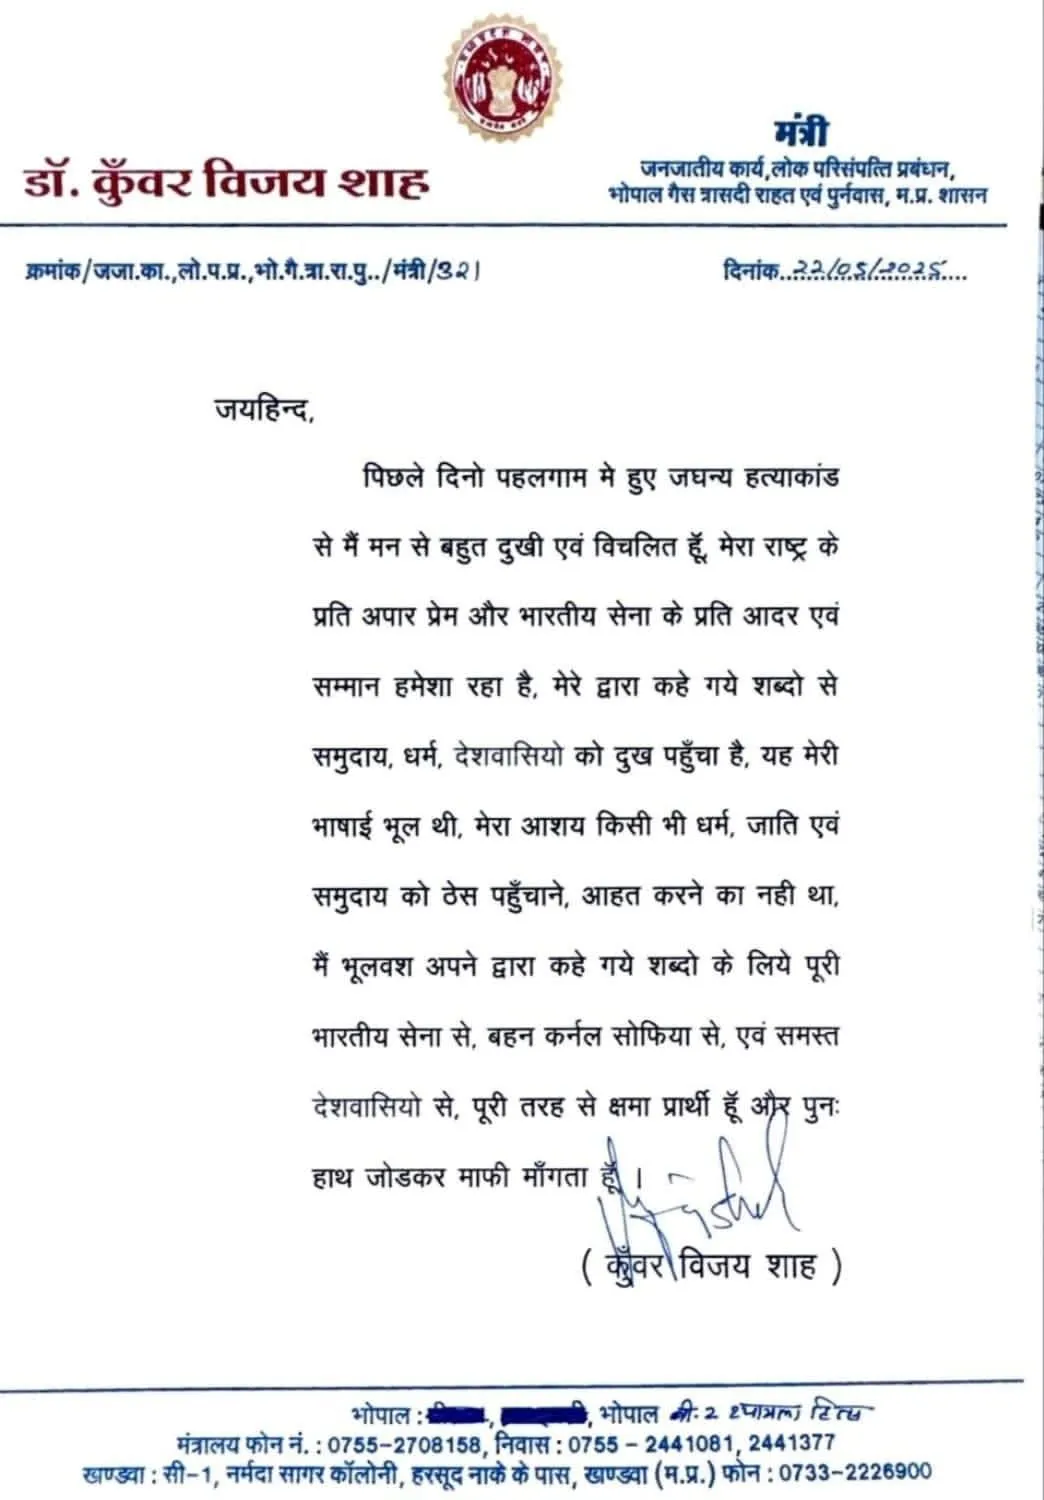 डॉ. कुँवर विजय शाह
मंत्री
जनजातीय कार्य,लोक परिसंपत्ति प्रबंधन,
भोपाल गैस त्रासदी राहत एवं पुर्नवास, म.प्र. शासन
क्रमांक/जजा.का.,लो.प.प्र.,भो.गै.त्रा.रा.पु../मंत्री/321
दिनांक..22/05/2025....
जयहिन्द,
पिछले दिनो पहलगाम मे हुए जघन्य हत्याकांड
से मैं मन से बहुत दुखी एवं विचलित हूॅं, मेरा राष्ट्र के
प्रति अपार प्रेम और भारतीय सेना के प्रति आदर एवं
सम्मान हमेशा रहा है, मेरे द्वारा कहे गये शब्दो से
समुदाय, धर्म, देशवासियो को दुख पहुँचा है, यह मेरी
भाषाई भूल थी, मेरा आशय किसी भी धर्म, जाति एवं
समुदाय को ठेस पहुँचाने, आहत करने का नही था,
मैं भूलवश अपने द्वारा कहे गये शब्दो के लिये पूरी
भारतीय सेना से, बहन कर्नल सोफिया से, एवं समस्त
देशवासियो से, पूरी तरह से क्षमा प्रार्थी हूॅं और पुनः
हाथ जोडकर माफी माँगता हूॅं ।
( कुँवर विजय शाह )
भोपाल : , , भोपाल बी-2
मंत्रालय फोन नं. : 0755-2708158, निवास : 0755 - 2441081, 2441377
खण्डवा : सी-1, नर्मदा सागर कॉलोनी, हरसूद नाके के पास, खण्डवा (म.प्र.) फोन : 0733-2226900